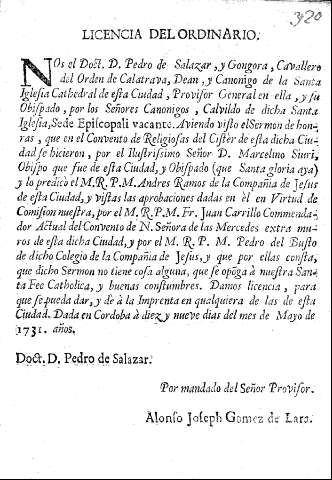 3420
LICENCIA DEL ORDINARIO.
NOs el Doct. D. Pedro de Salazar, y Gongora, Cavallero
del Orden de Calatrava, Dean, y Canonigo de la Santa
Iglesia Cathedral de esta Ciudad, Provisor General en ella, y su
Obispado, por los Señores Canonigos, Calvildo de dicha Santa
Iglesia, Sede Episcopali vacante. Aviendo visto el Sermon de hon-
ras, que en el Convento de Religiosas del Cister de esta dicha Ciu-
dad se hicieron, por el Ilustrissimo Señor D. Marcelino Siuri,
Obispo que fue de esta Ciudad, y Obispado (que Santa gloria aya)
y lo predicò el M.R.P.M. Andres Ramos de la Compañia de Jesus
de esta Ciudad, y vistas las aprobaciones dadas en èl en Virtud de
Comision nuestra, por el M.R.P.M. Fr. Juan Carrillo Commenda-
dor Actual del Convento de N. Señora de las Mercedes extra mu-
ros de esta dicha Ciudad, y por el M. R. P. M. Pedro del Busto
de dicho Colegio de la Compañia de Jesus, y que por ellas consta,
que dicho Sermon no tiene cosa alguna, que se opõga à nuestra San-
ta Fee Catholica, y buenas constumbres. Damos licencia, para
que se pueda dar, y dè à la Imprenta en qualquiera de las de esta
Ciudad. Dada en Cordoba à diez y nueve dias del mes de Mayo de
1731. años.
Doct. D. Pedro de Salazar.
Por mandado del Señor Provisor.
Alonso Joseph Gomez de Lara.